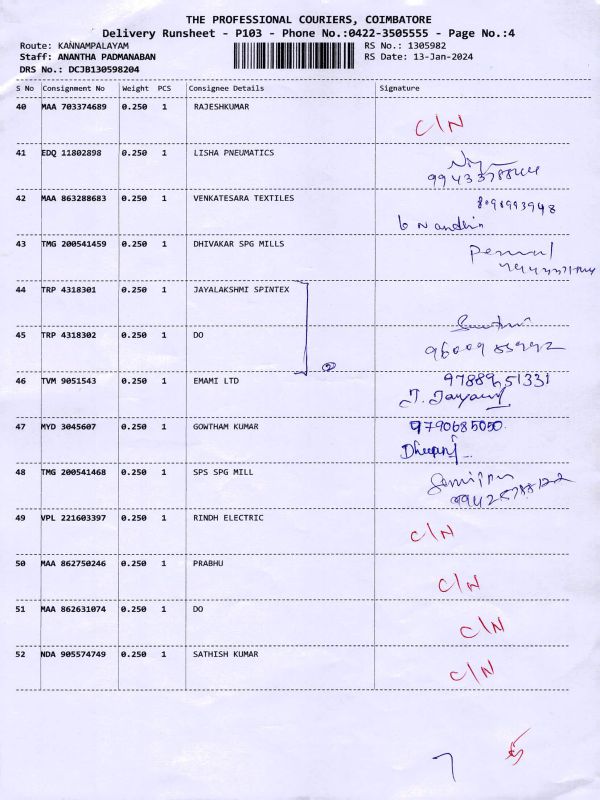 THE PROFESSIONAL COURIERS, COIMBATORE
Delivery Runsheet - P103 - Phone No.:0422-3505555 - Page No.:4
Route: KANNAMPALAYAM RS No.: 1305982
Staff: ANANTHA PADMANABAN RS Date: 13-Jan-2024
DRS No.: DCJB130598204
S No Consignment No Weight PCS Consignee Details Signature
40 MAA 703374689 0.250 1 RAJESHKUMAR C/N
41 EDQ 11802898 0.250 1 LISHA PNEUMATICS
42 MAA 863288683 0.250 1 VENKATESARA TEXTILES
43 TMG 200541459 0.250 1 DHIVAKAR SPG MILLS
44 TRP 4318301 0.250 1 JAYALAKSHMI SPINTEX
45 TRP 4318302 0.250 1 DO
46 TVM 9051543 0.250 1 EMAMI LTD 9788951331
47 MYD 3045607 0.250 1 GOWTHAM KUMAR 9790685050
48 TMG 200541468 0.250 1 SPS SPG MILL
49 VPL 221603397 0.250 1 RINDH ELECTRIC C/N
50 MAA 862750246 0.250 1 PRABHU C/N
51 MAA 862631074 0.250 1 DO C/N
52 NDA 905574749 0.250 1 SATHISH KUMAR C/N